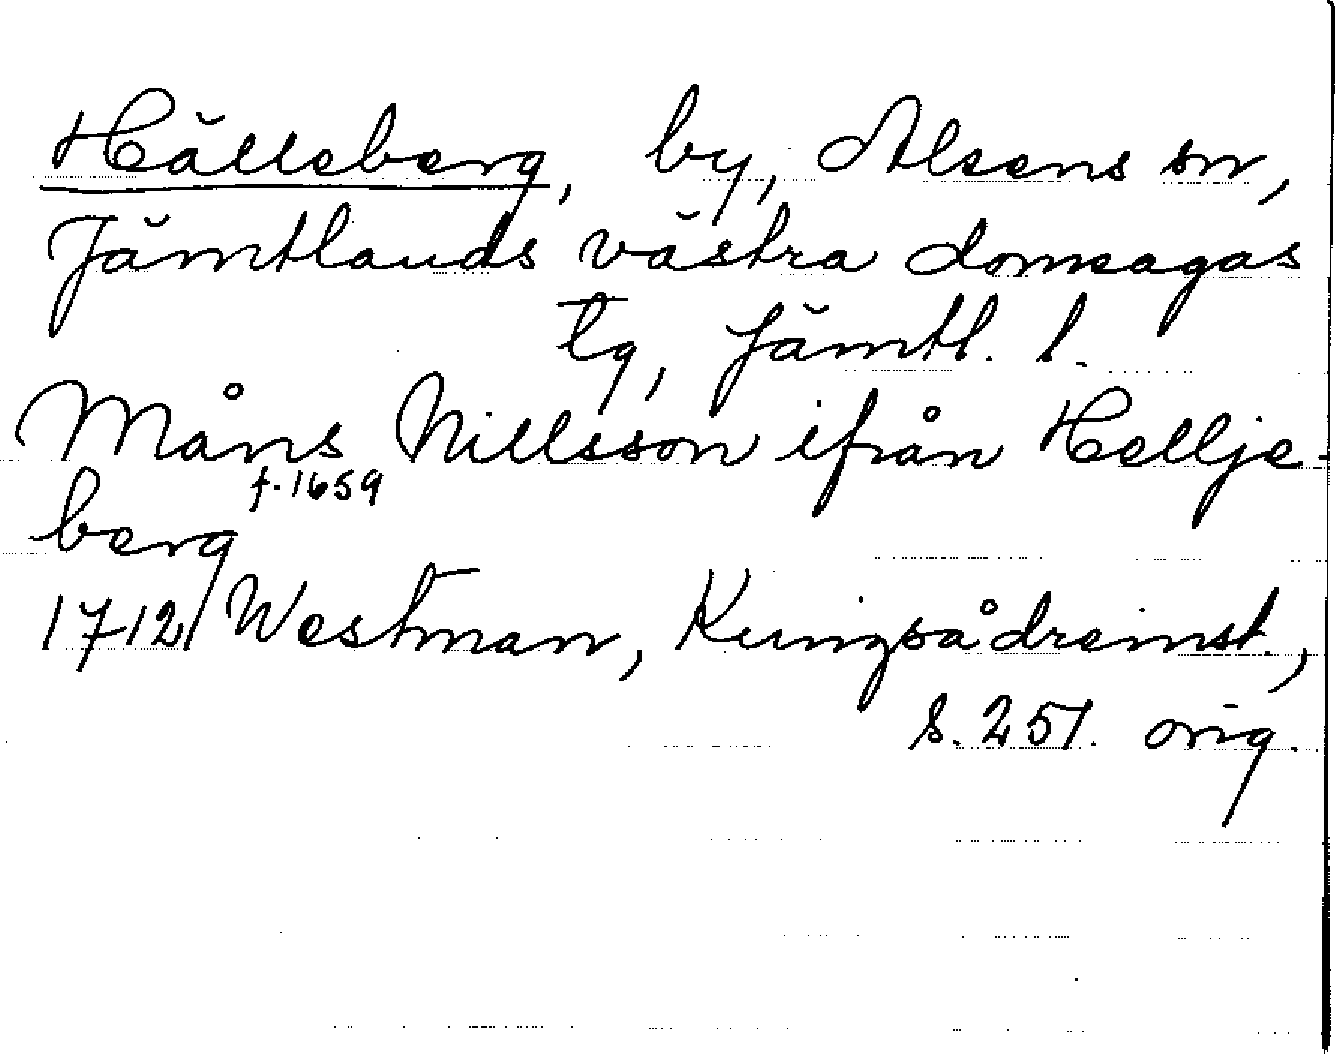 Hälleberg, by, Alsens sn,
Jämtlands västra domsagas
tg, Jämtl. l.
Måns Nillsson ifrån Hellje-
berg f. 1659
1712 Westman, Kungsådrainst.,
s. 251. orig.